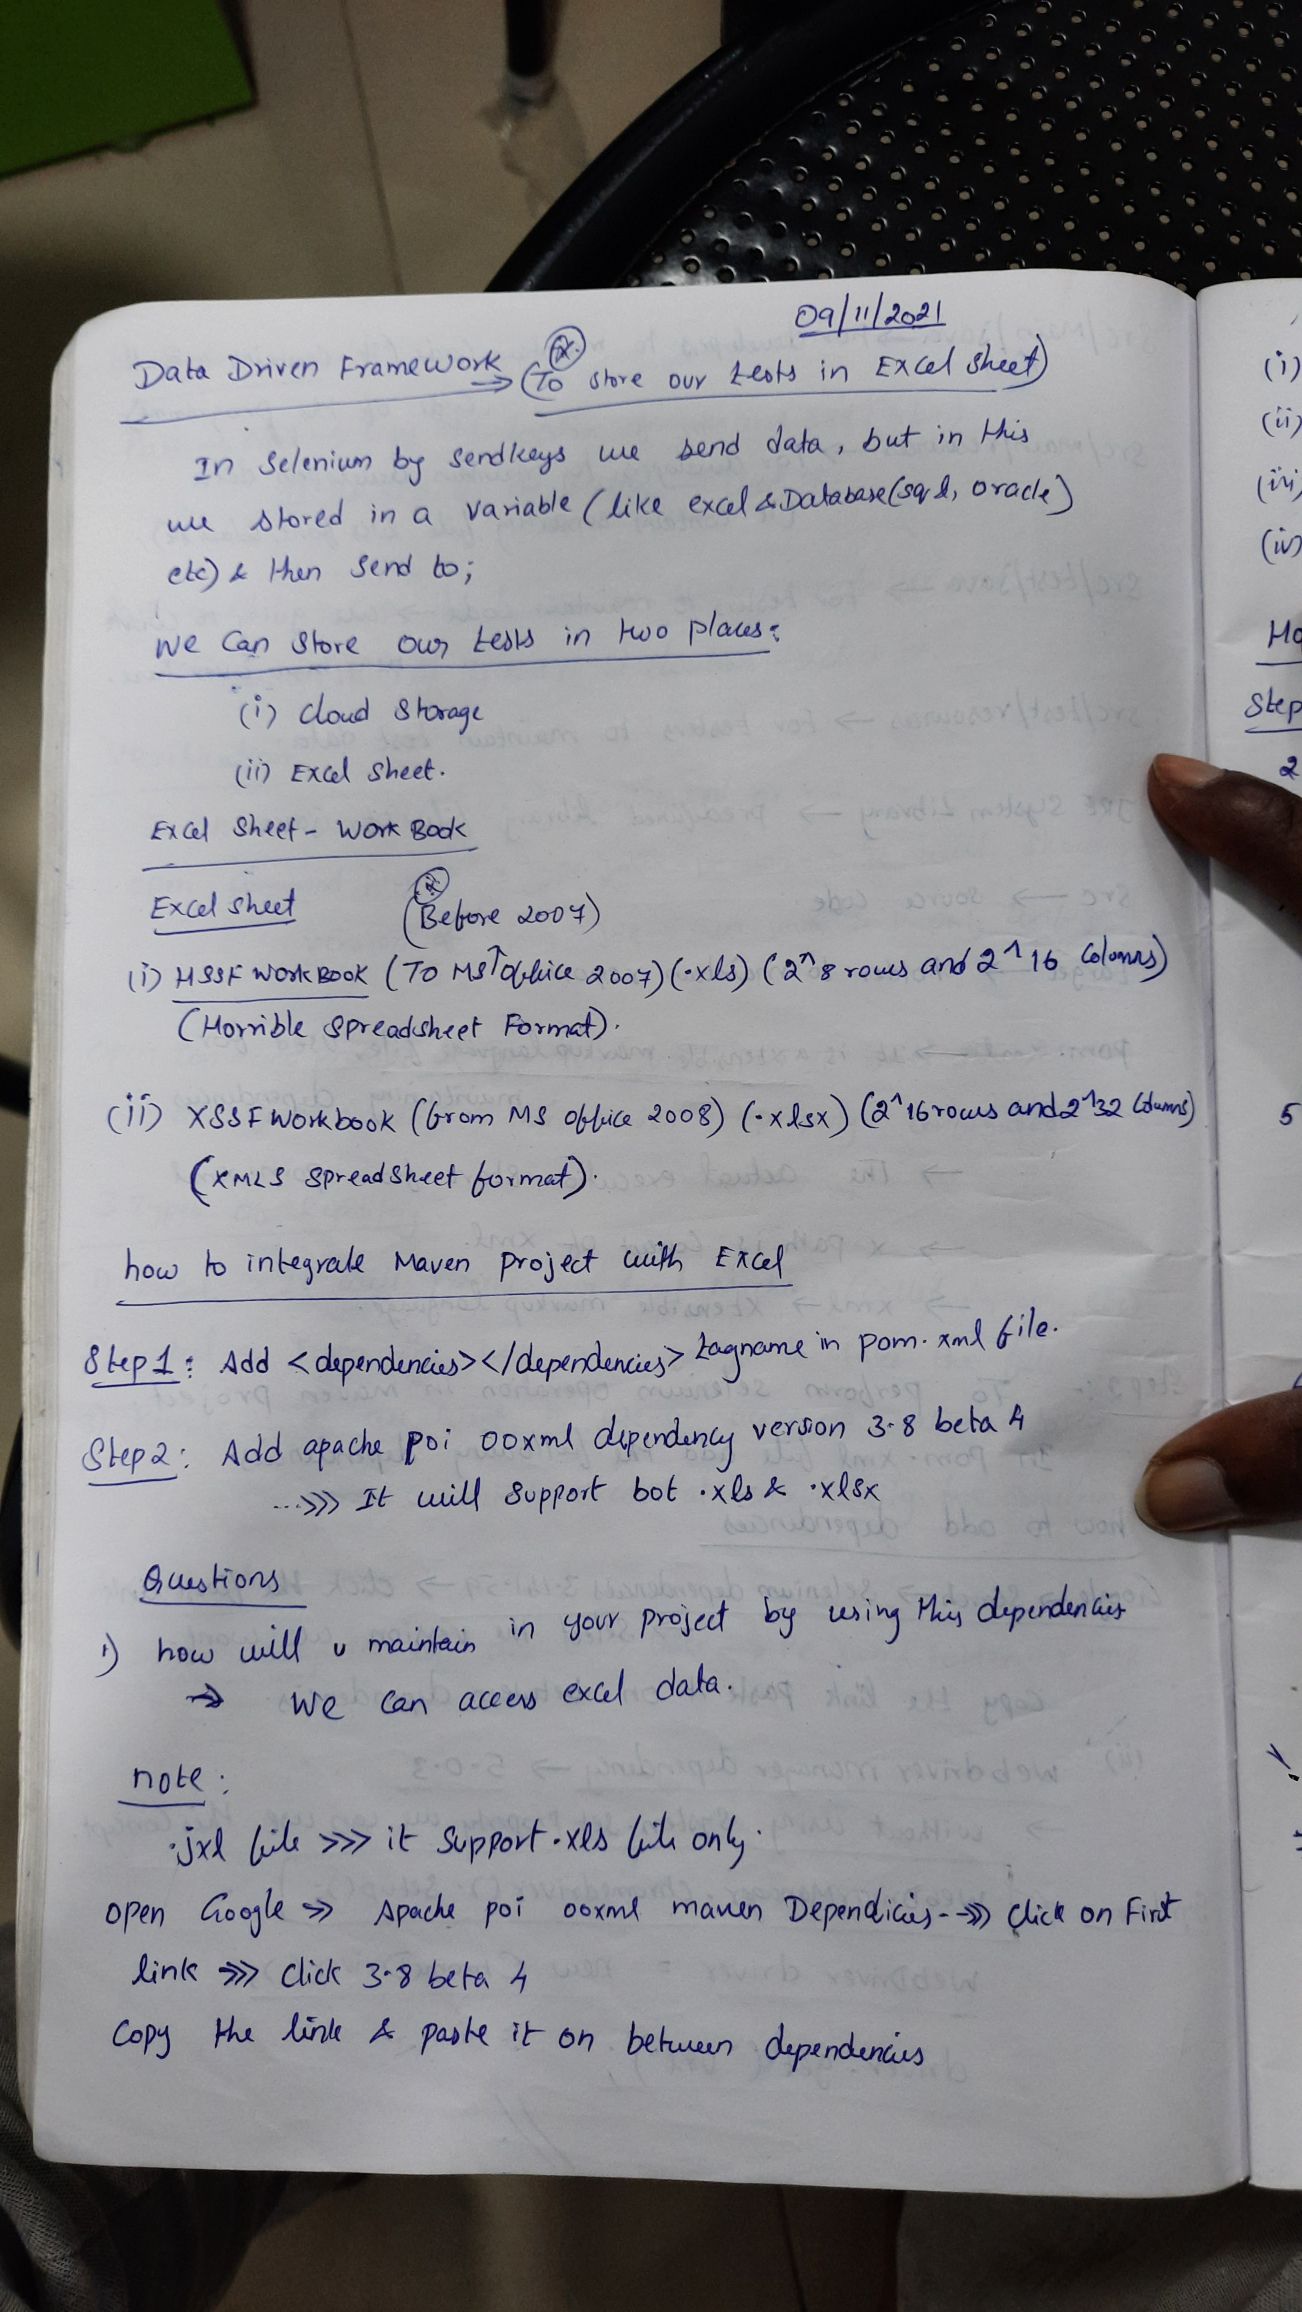 09/11/2021
Data Driven Framework → (To store our tests in Excel sheet)
In Selenium by sendkeys we send data, but in this
we stored in a variable (like excel & Database(sql, oracle)
etc) & then send to;
We can store our tests in two places:
(i) Cloud Storage
(ii) Excel Sheet.
Excel Sheet - Work Book
Excel sheet (Before 2007)
(i) HSSF WorkBook (To MS↑office 2007) (.xls) (2^8 rows and 2^16 Columns)
(Horrible Spreadsheet Format).
(ii) XSSF Workbook (from MS office 2008) (.xlsx) (2^16 rows and 2^32 Columns)
(XMLS Spreadsheet format).
how to integrate Maven project with Excel
Step 1: Add <dependencies></dependencies> tagname in pom.xml file.
Step 2: Add apache poi ooxml dependency version 3.8 beta 4
...>>> It will support bot .xls & .xlsx
Questions
1) how will u maintain in your project by using this dependencies
→ We can access excel data.
note:
.jxl file >>> it support .xls file only.
open Google >> Apache poi ooxml maven Dependicies-->>> click on First
link >>> click 3.8 beta 4
Copy the link & paste it on between dependencies
(i)
(ii)
(iii)
(iv)
Ho
Step
2
5